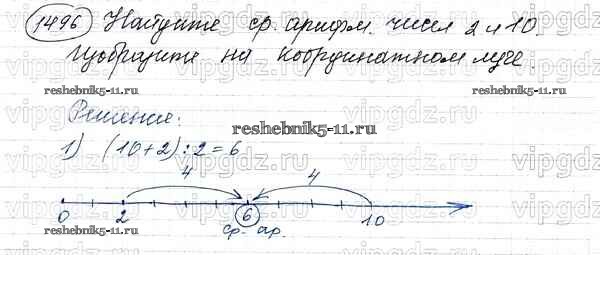 1496 Найдите ср. арифм. чисел 2 и 10.
Изобразите на координатном луче.
reshebnik5-11.ru reshebnik5-11.ru
Решение:
reshebnik5-11.ru
1) (10+2):2=6
4 4
0 2 6 10
reshebnik5-11.ru ср. ар. reshebnik5-11.ru
vipgdz.ru